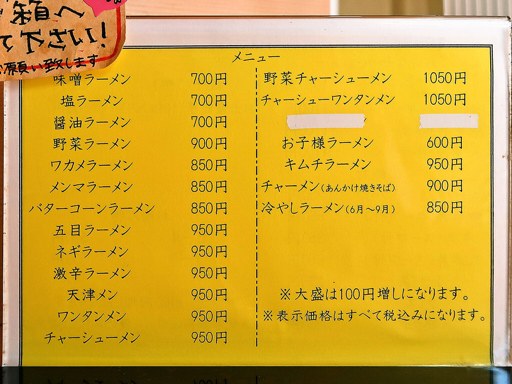 箱へ
て下さい!
お願い致します
メニュー
味噌ラーメン 700円
塩ラーメン 700円
醤油ラーメン 700円
野菜ラーメン 900円
ワカメラーメン 850円
メンマラーメン 850円
バターコーンラーメン 850円
五目ラーメン 950円
ネギラーメン 950円
激辛ラーメン 950円
天津メン 950円
ワンタンメン 950円
チャーシューメン 950円
野菜チャーシューメン 1050円
チャーシューワンタンメン 1050円
お子様ラーメン 600円
キムチラーメン 950円
チャーメン(あんかけ焼きそば) 900円
冷やしラーメン(6月〜9月) 850円
※大盛は100円増しになります。
※表示価格はすべて税込みになります。